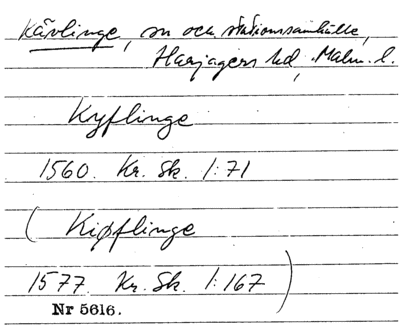 Kävlinge, sn och stationssamhälle,
Harjagers hd, Malm. l.
Kyflinge
1560. Kr. Sk. 1:71
( Kiøflinge
1577. Kr. Sk. 1:167 )
Nr 5616.